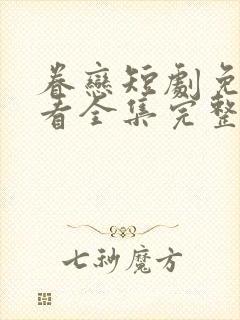 眷戀短劇免
看全集完整
七秒魔方